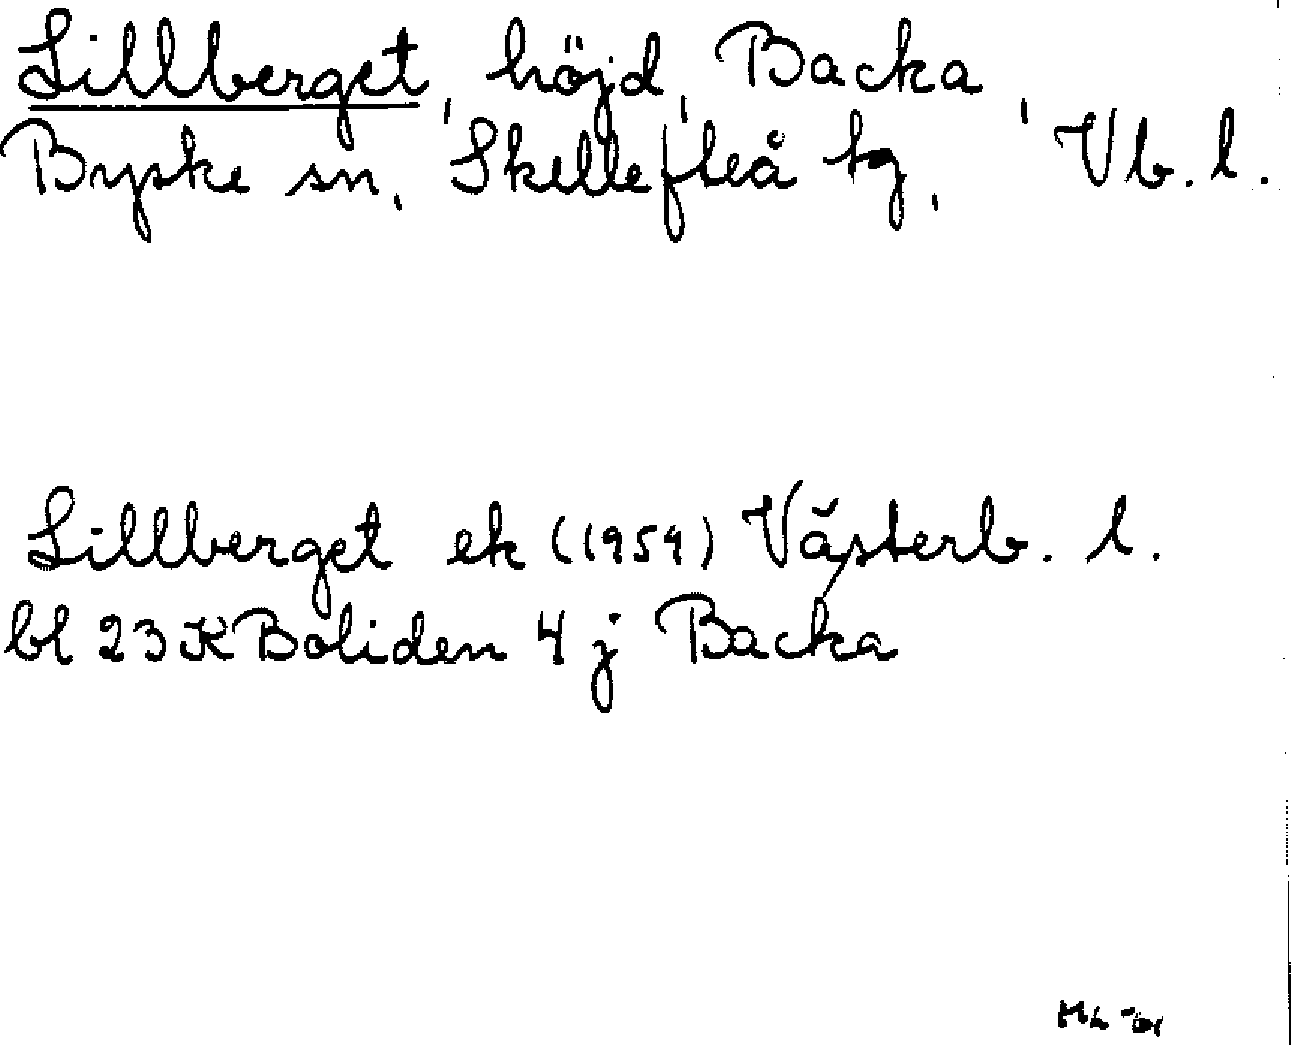 Lillberget, höjd, Backa,
Byske sn, Skellefteå tg, Vb. l.
Lillberget ek (1959) Västerb. l.
bl 23 K Boliden 4 j Backa